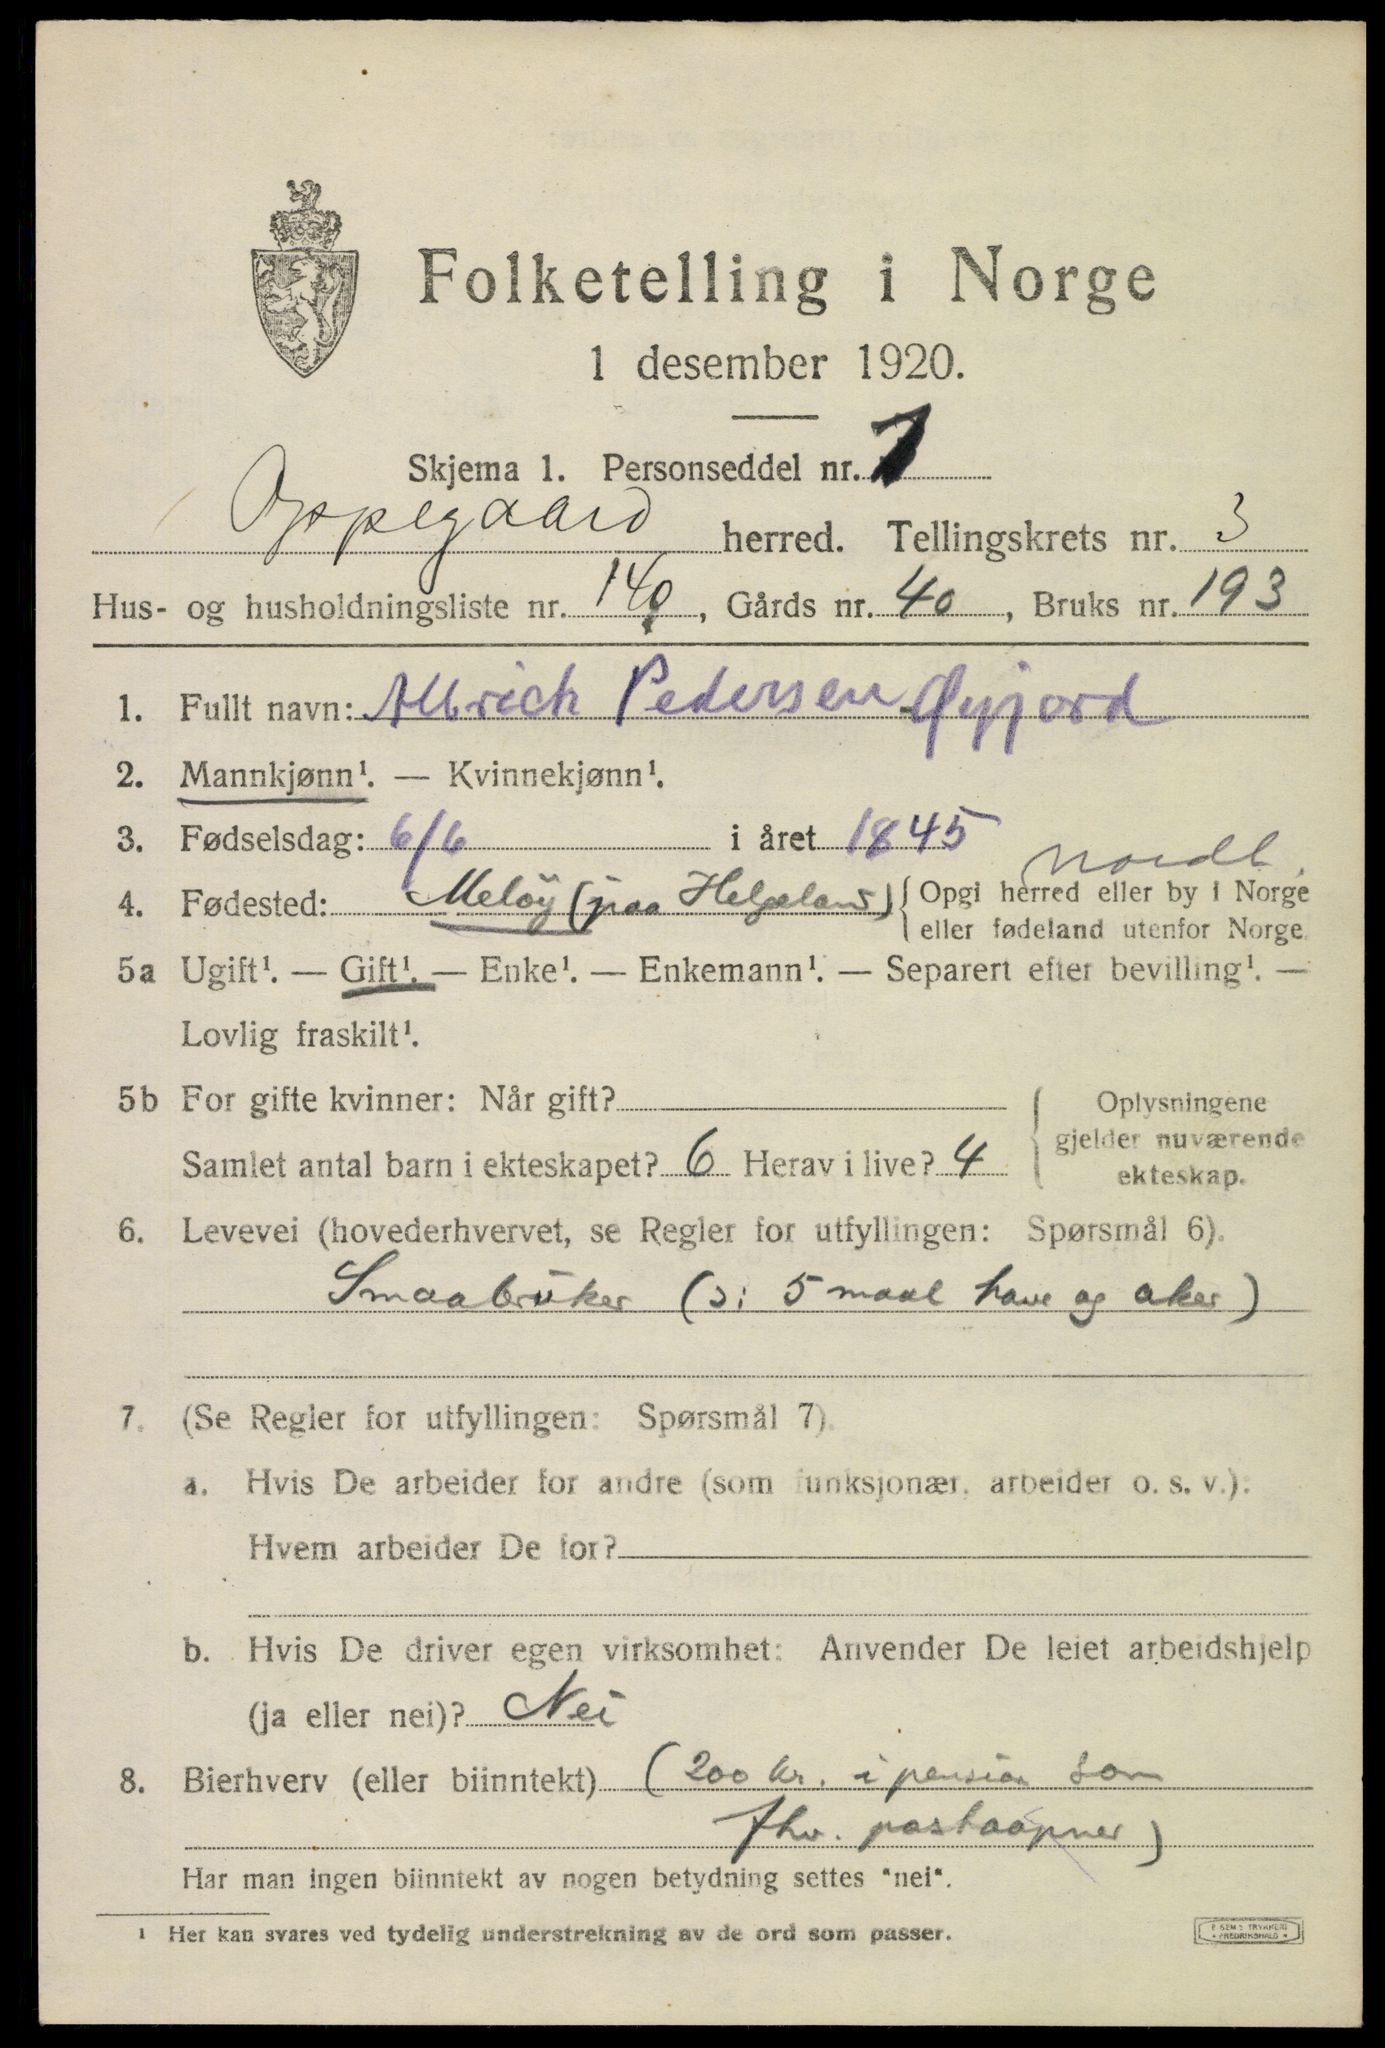 Folketelling i Norge
1 desember 1920.
Skjema 1. Personseddel nr. 1
Oppegaard herred. Tellingskrets nr. 3
Hus- og husholdningsliste nr. 140, Gårds nr. 40, Bruks nr. 193
1. Fullt navn: Albrich Pedersen Øyjord
2. Mannkjønn¹. — Kvinnekjønn¹.
3. Fødselsdag: 6/6 i året 1845
Nordl.
4. Fødested: Meløy (paa Helgeland) { Opgi herred eller by i Norge
eller fødeland utenfor Norge.
5a Ugift¹. — Gift¹. — Enke¹. — Enkemann¹. — Separert efter bevilling¹. —
Lovlig fraskilt¹.
5b For gifte kvinner: Når gift?
Samlet antal barn i ekteskapet? 6 Herav i live? 4
{ Oplysningene
gjelder nuværende
ekteskap.
6. Levevei (hovederhvervet, se Regler for utfyllingen: Spørsmål 6).
Smaabrüker (ɔ: 5 maal have og aker)
7. (Se Regler for utfyllingen: Spørsmål 7).
a. Hvis De arbeider for andre (som funksjonær, arbeider o. s. v.):
Hvem arbeider De for?
b. Hvis De driver egen virksomhet: Anvender De leiet arbeidshjelp
(ja eller nei)? Nei
8. Bierhverv (eller biinntekt) (200 kr. i pension som
fhv. postaapner)
Har man ingen biinntekt av nogen betydning settes "nei".
¹ Her kan svares ved tydelig understrekning av de ord som passer.
E SEM'S TRYKKERI
FREDRIKSHALD